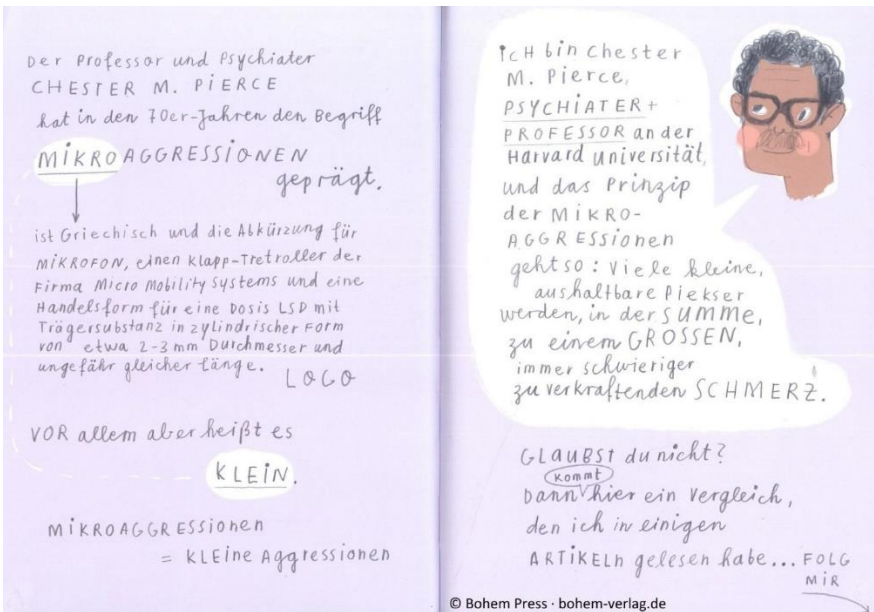 Der Professor und Psychiater
CHESTER M. PIERCE
hat in den 70er-Jahren den Begriff
MIKROAGGRESSIONEN
geprägt.
ist Griechisch und die Abkürzung für
MIKROFON, einen Klapp-Tretroller der
Firma Micro Mobility Systems und eine
Handelsform für eine Dosis LSD mit
Trägersubstanz in zylindrischer Form
von etwa 2-3 mm Durchmesser und
ungefähr gleicher Länge.
LOGO
VOR allem aber heißt es
KLEIN.
MIKROAGGRESSIONEN
= KLEINE Aggressionen
ICH bin Chester
M. Pierce,
PSYCHIATER +
PROFESSOR an der
Harvard Universität,
und das Prinzip
der MIKRO-
AGGRESSIONEN
geht so: Viele kleine,
aushaltbare Piekser
werden, in der SUMME,
zu einem GROSSEN,
immer schwieriger
zu verkraftenden SCHMERZ.
GLAUBST du nicht?
Dann kommt hier ein Vergleich,
den ich in einigen
ARTIKELN gelesen habe... FOLG
MIR
© Bohem Press · bohem-verlag.de